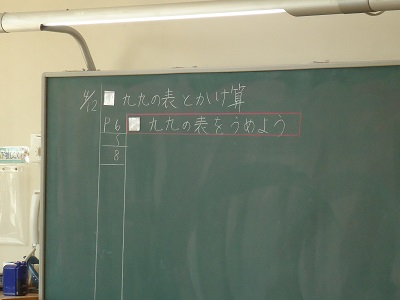 4/12 九九の表とかけ算
P6 九九の表をうめよう
5
8